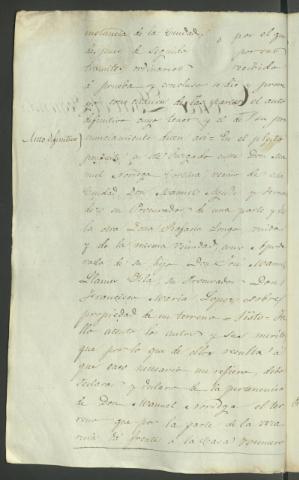 instancia de la Ciudad, y por el que
despues de seguida por sus
tramites ordinarios recibida
á prueba y concluso se dio y pronun
ció con citacion de las partes el auto
definitivo cuyo tenor y el de su pro
nunciamiento dicen asi= En el pleyto
Auto definitivo
pendiente en este Juzgado entre Don Ma
nuel Noriega vecino de esta
Ciudad, Don Manuel y
su Procurador de una parte y de
la otra Dona Rafaela Longo viuda
y de la misma vecindad, como Apode
rado de su hijo Don José Manuel
Llanes su Procurador Don
Francisco Maria Lopez sobre
propiedad de un terreno = Visto = Fa
llo atento los autos y sus meritos
que por lo que de ellos resulta á
que caso necesario me refiero, debo
declarar y declaro de la pertenencia
de Don Manuel Noriega el ter
reno que por la parte de la
de frente á la Casa numero